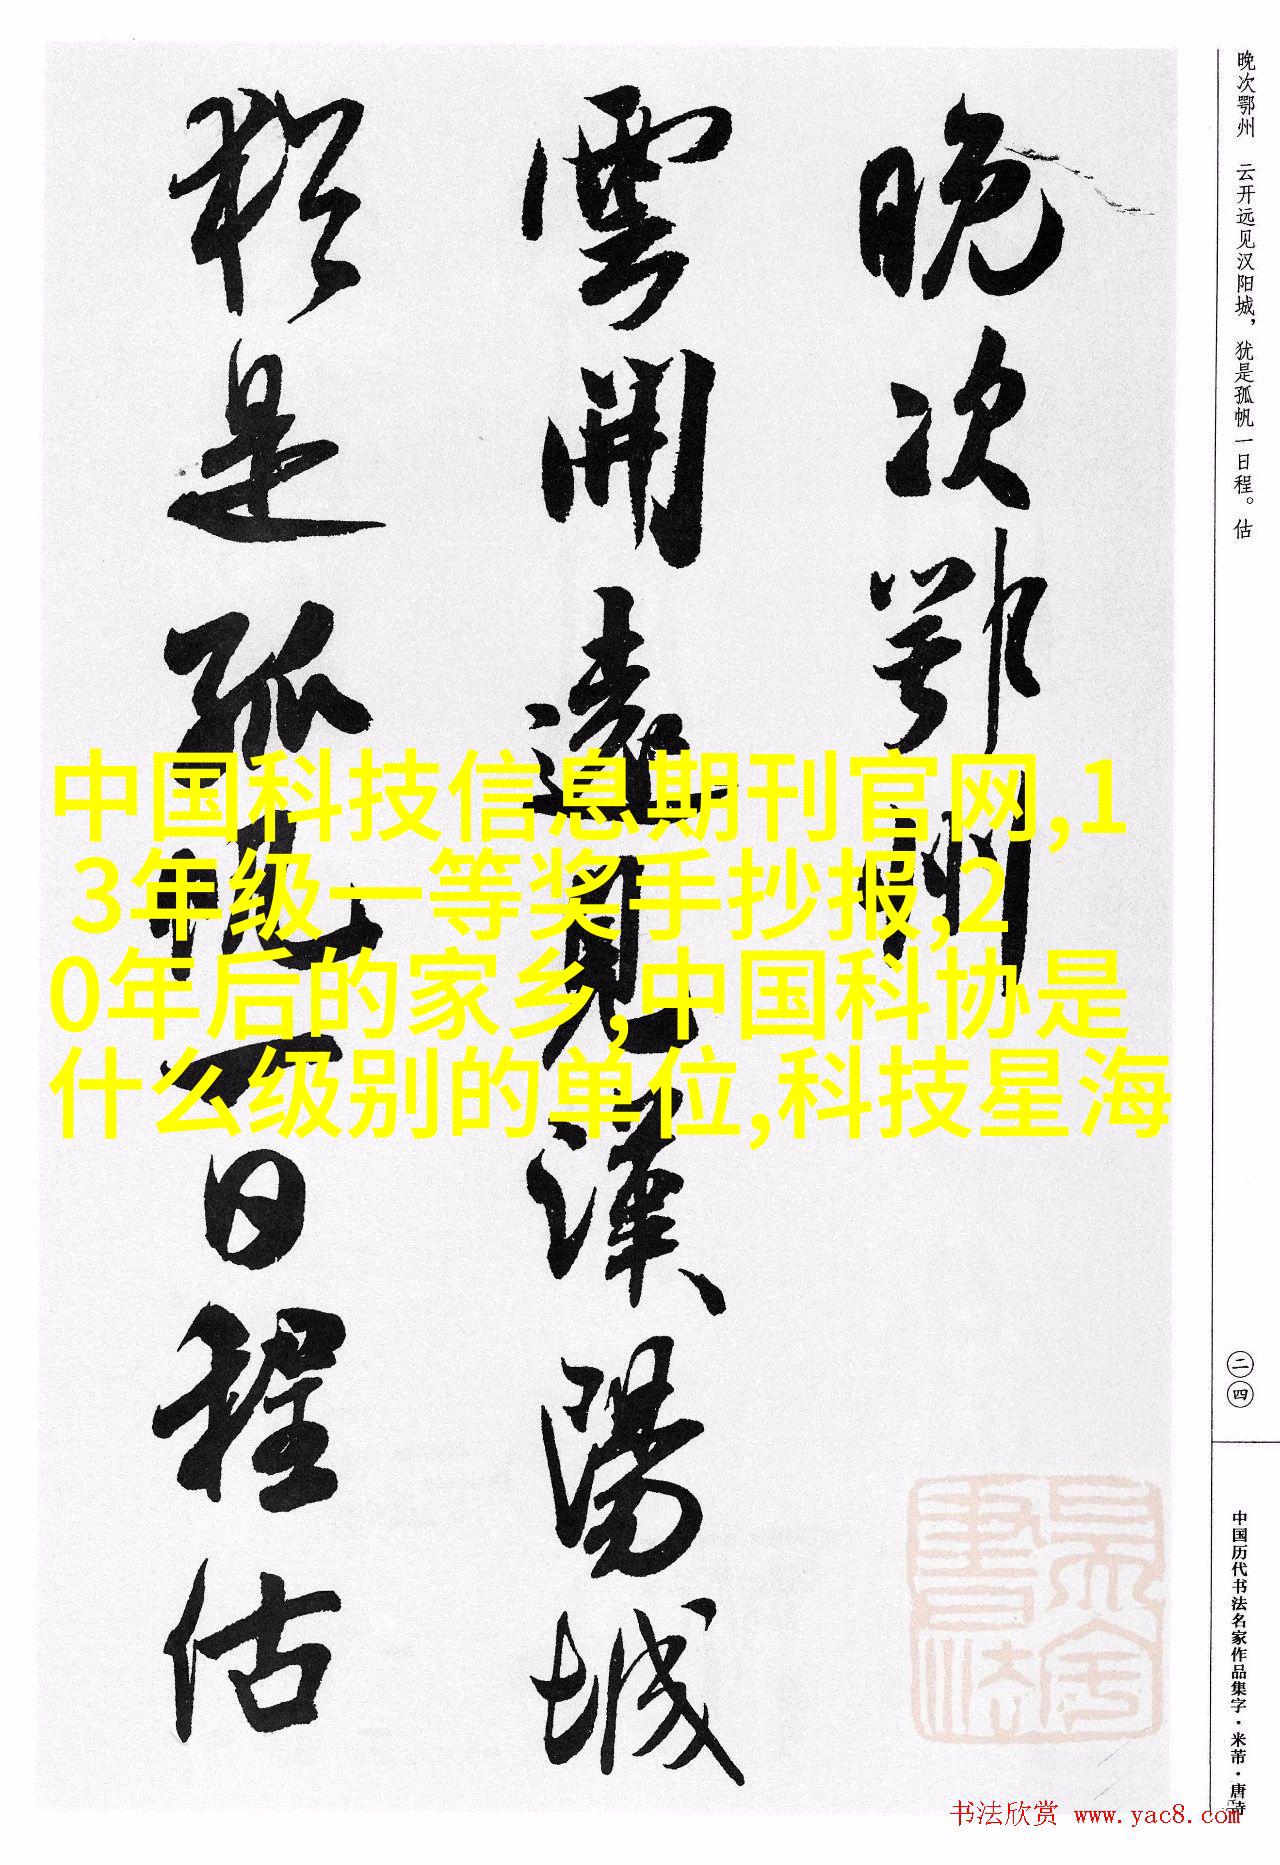 晚次鄂州 云开远见汉阳城，犹是孤帆一日程。估
二四
中国历代书法名家作品集字·米芾·唐诗
晚次鄂州
雲開遠見漢陽城
猶是孤帆一日程估
中国科技信息期刊官网,1
3年级一等奖手抄报,2
0年后的家乡,中国科协是
什么级别的单位,科技星海
书法欣赏 www.yac8.com